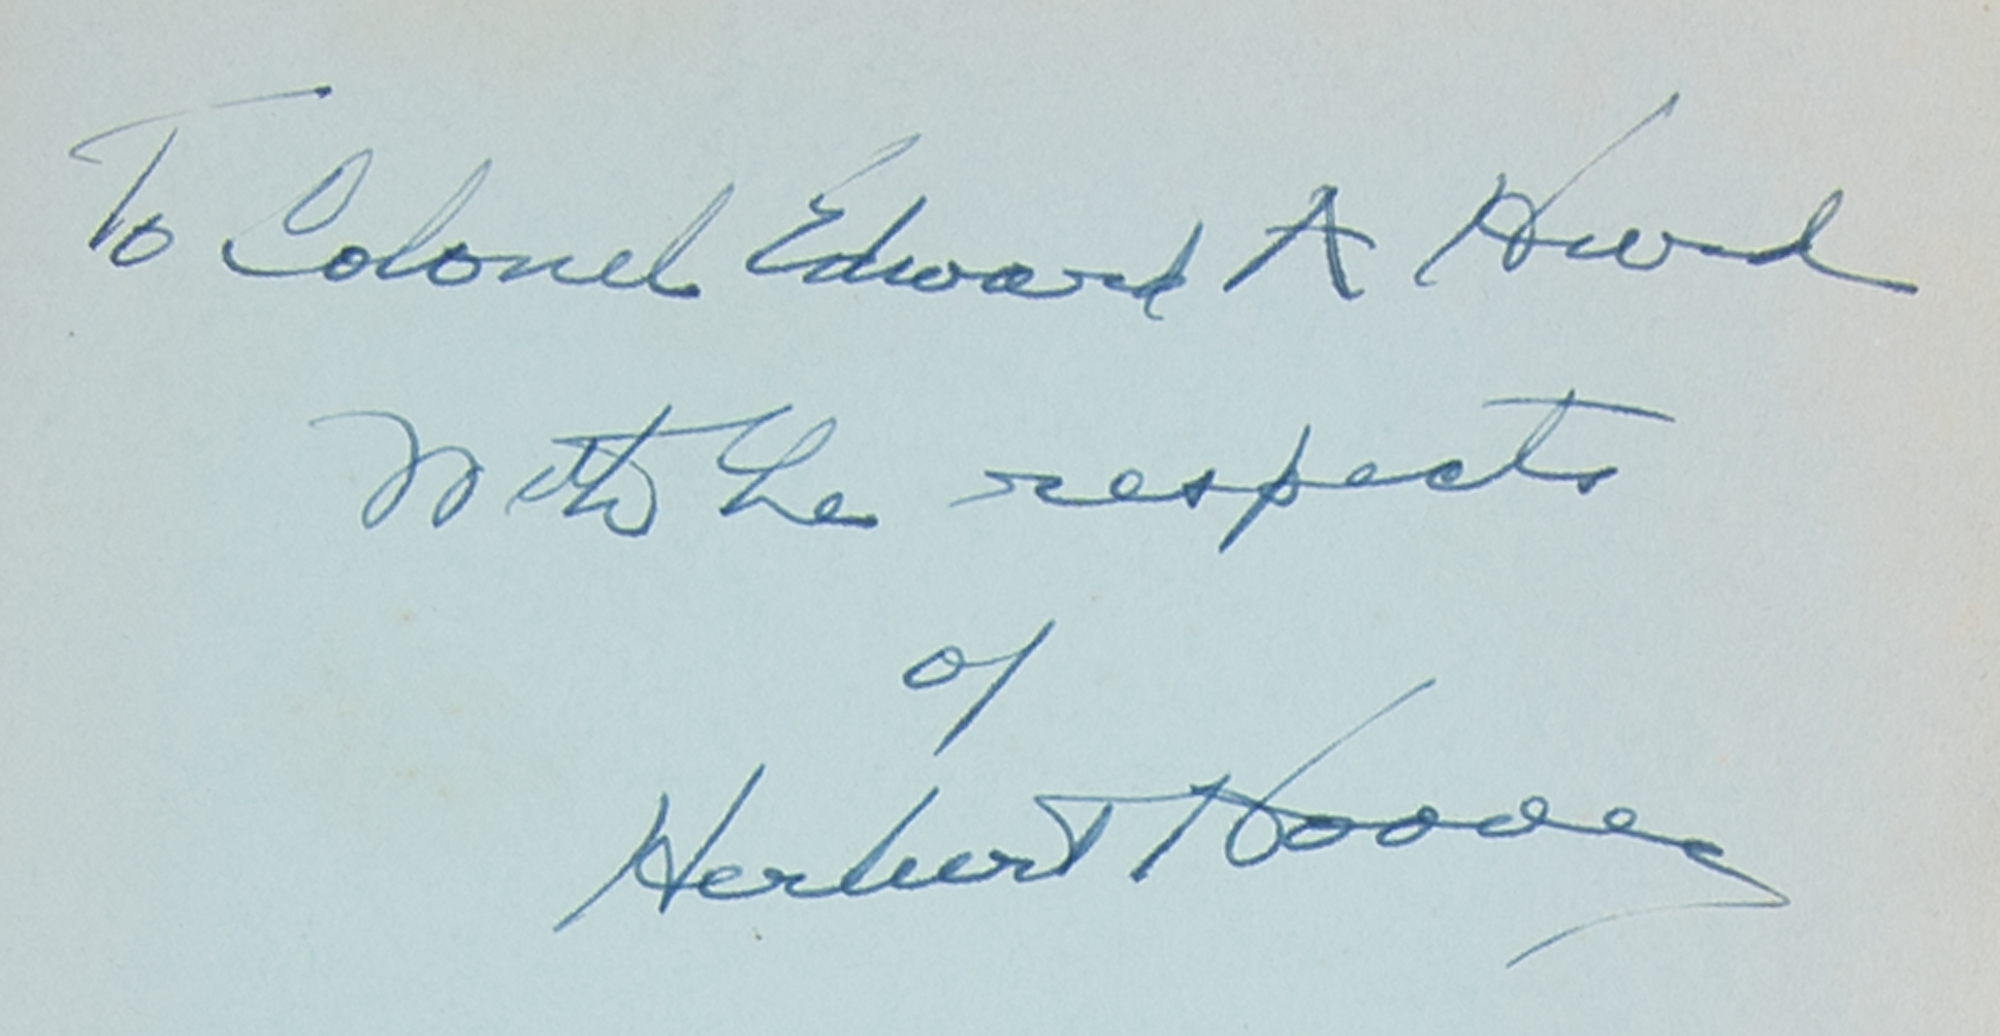 To Colonel Edward A
With the respects
of
Herbert Hoover